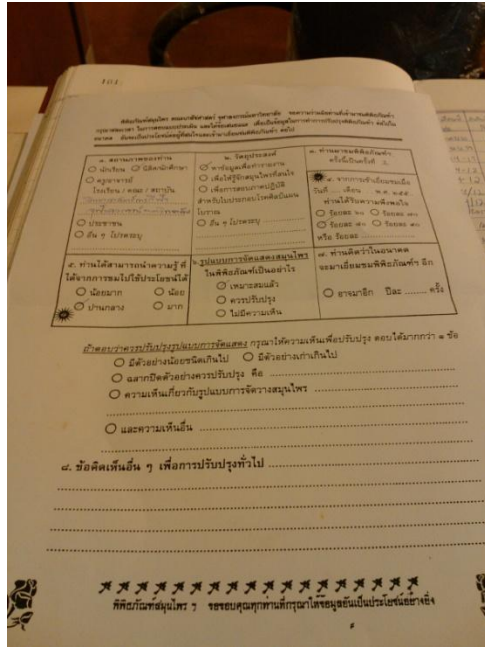 101
พิพิธภัณฑ์สมุนไพร คณะเภสัชศาสตร์ จุฬาลงกรณ์มหาวิทยาลัย ขอความร่วมมือท่านที่เข้าชมพิพิธภัณฑ์ฯ
๑. สถานภาพของท่าน
นักเรียน นิสิต/นักศึกษา
ครู/อาจารย์
โรงเรียน / คณะ / สถาบัน
ประชาชน
อื่น ๆ โปรดระบุ
๒. วัตถุประสงค์
หาข้อมูลเพื่อทำรายงาน
เพื่อให้รู้จักสมุนไพรที่สนใจ
เพื่อการสอบภาคปฏิบัติ
สำหรับใบประกอบโรคศิลป์แผน
โบราณ
อื่น ๆ โปรดระบุ
๓. ท่านมาชมพิพิธภัณฑ์ฯ
ครั้งนี้เป็นครั้งที่
๔. จากการเข้าเยี่ยมชมเมื่อ
วันที่ .... เดือน พ.ศ. ๒๕๕
ท่านได้รับความพึงพอใจ
หรือ ร้อยละ
๕. ท่านได้สามารถนำความรู้ ที่
ได้จากการชมไปใช้ประโยชน์ได้
น้อยมาก น้อย
ปานกลาง มาก
๖. รูปแบบการจัดแสดงสมุนไพร
ในพิพิธภัณฑ์เป็นอย่างไร
เหมาะสมแล้ว
ควรปรับปรุง
ไม่มีความเห็น
๗. ท่านคิดว่าในอนาคต
จะมาเยี่ยมชมพิพิธภัณฑ์ฯ อีก
อาจมาอีก ปีละ ........ ครั้ง
ถ้าตอบว่าควรปรับปรุงรูปแบบการจัดแสดง กรุณาให้ความเห็นเพื่อปรับปรุง ตอบได้มากกว่า ๑ ข้อ
มีตัวอย่างน้อยชนิดเกินไป มีตัวอย่างเก่าเกินไป
ฉลากปิดตัวอย่างควรปรับปรุง คือ
ความเห็นเกี่ยวกับรูปแบบการจัดวางสมุนไพร
และความเห็นอื่น
๘. ข้อคิดเห็นอื่น ๆ เพื่อการปรับปรุงทั่วไป
พิพิธภัณฑ์สมุนไพร ๆ ขอขอบคุณทุกท่านที่กรุณาให้ข้อมูลอันเป็นประโยชน์อย่างยิ่ง